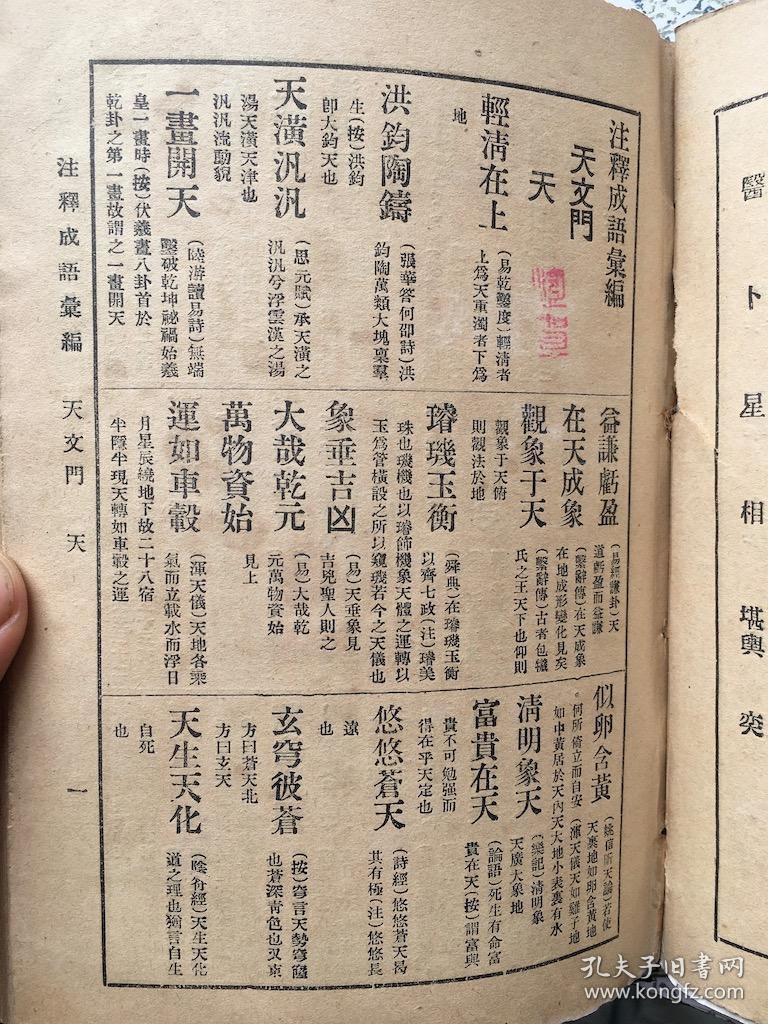 醫卜星相堪輿奕
注釋成語彙編
天文門
天
輕清在上
(易乾鑿度)輕清者
上爲天重濁者下爲
地
洪鈞陶鑄
(張華答何卲詩)洪
鈞陶萬類大塊稟羣
生(按)洪鈞
卽大鈞天也
天潢汎汎
(思元賦)承天潢之
汎汎兮浮雲漢之湯
湯天潢天津也
汎汎流動貌
一畫開天
(陸游讀易詩)無端
鑿破乾坤祕禍始羲
皇一畫時(按)伏羲畫八卦首於
乾卦之第一畫故謂之一畫開天
益謙虧盈
(易經謙卦)天
道虧盈而益謙
在天成象
(繫辭傳)在天成象
在地成形變化見矣
觀象于天
(繫辭傳)古者包犧
氏之王天下也仰則
觀象于天俯
則觀法於地
璿璣玉衡
(舜典)在璿璣玉衡
以齊七政(注)璿美
珠也璣機也以璿飾機象天體之運轉以
玉爲管橫設之所以窺璣若今之天儀也
象垂吉凶
(易)天垂象見
吉兇聖人則之
大哉乾元
(易)大哉乾
元萬物資始
萬物資始
見上
運如車轂
(渾天儀)天地各乘
氣而立載水而浮日
月星辰繞地下故二十八宿
半隱半現天轉如車轂之運
似卵含黃
(姚信昕天論)若使
天裹地如卵含黃地
何所倚立而自安(渾天儀天如雞子地
如中黃居於天內天大地小表裏有水
清明象天
(樂記)清明象
天廣大象地
富貴在天
(論語)死生有命富
貴在天(按)謂富與
貴不可勉强而
得在乎天定也
悠悠蒼天
(詩經)悠悠蒼天曷
其有極(注)悠悠長
遠
也
玄穹彼蒼
(按)穹言天勢穹窿
也蒼深靑色也又東
方曰蒼天北
方曰玄天
天生天化
(陰符經)天生天化
道之理也猶言自生
自死
也
注釋成語彙編 天文門 天 一
孔夫子旧书网
www.kongfz.com